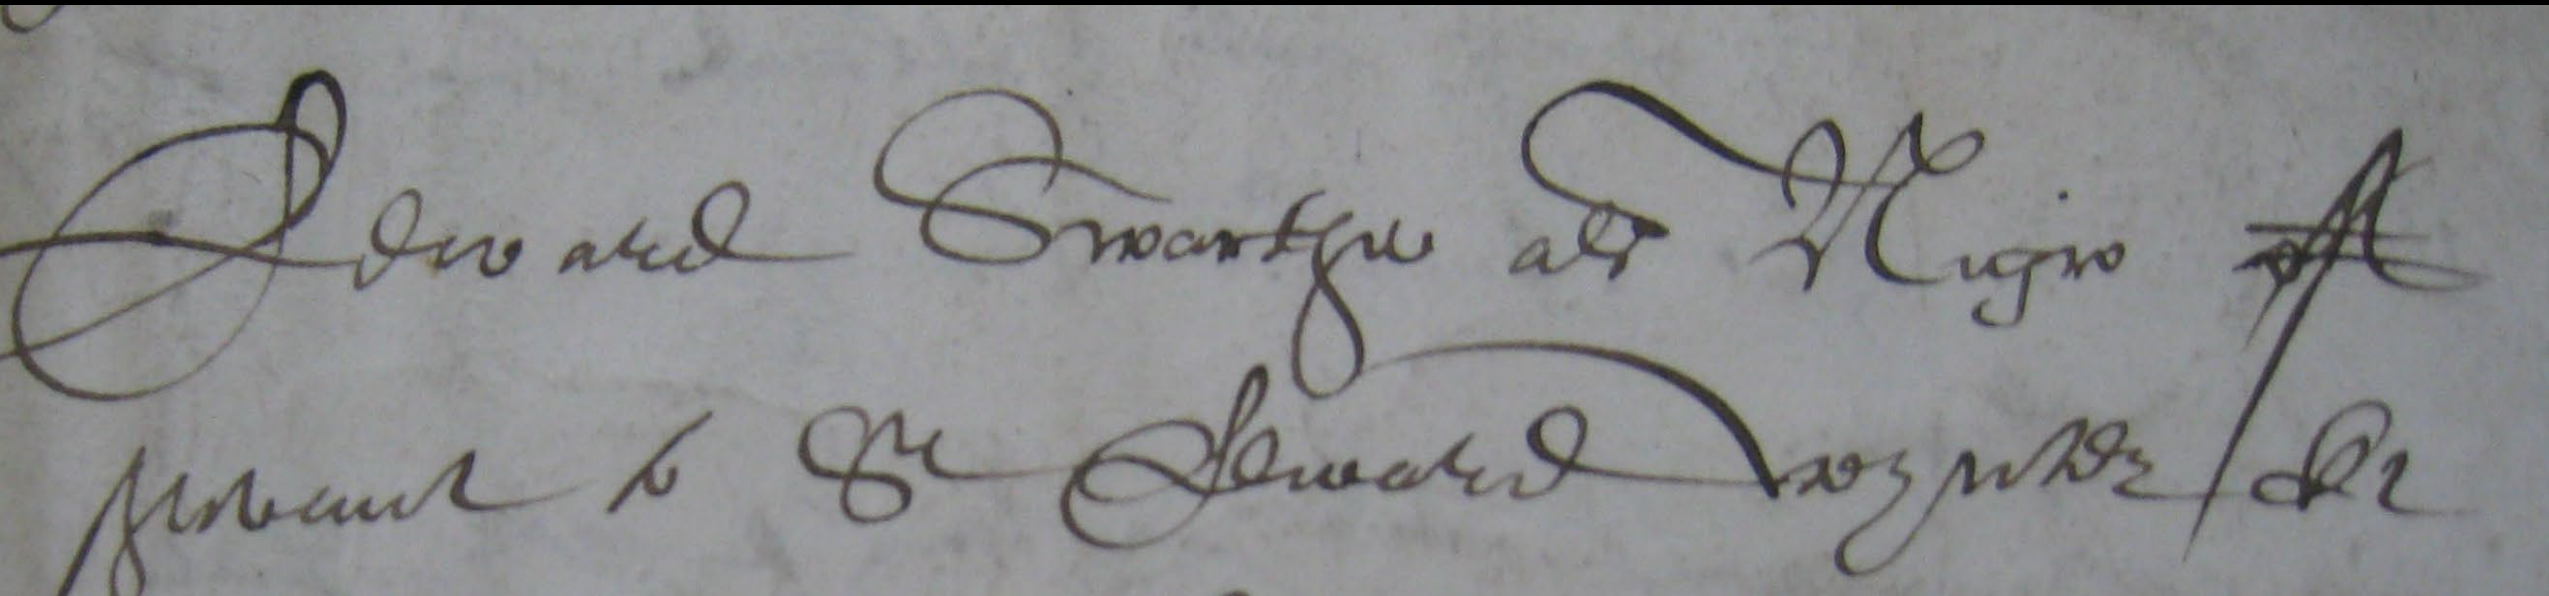 Edward Swarthye als Negro
servant to Sr Edward Wynter kt